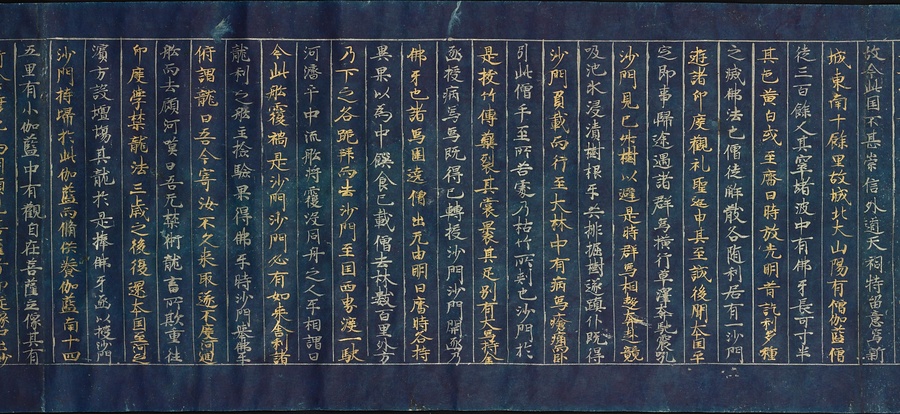 故今此国不甚崇信外道天祠特留意焉新
城東南十餘里故城北大山陽有僧伽藍僧
徒三百餘人其窣堵波中有佛牙長可寸半
其色黄白或至齋日時放光明昔訖利多種
之滅佛法也僧徒解散各随利居有一沙門
遊諸印度觀礼聖迹申其至誠後聞本国平
定即事歸途遇諸群象横行草澤奔馳震吼
沙門見已升樹以避是時群象相趍奔赴競
吸池水浸漬樹根互共排掘樹遂蹎仆既得
沙門負載而行至大林中有病象瘡痛而臥
引此僧手至所苦處乃枯竹所刺也沙門於
是拔竹傅藥裂其裳裹其足別有大象持金
函授病象象既得已轉授沙門沙門開函乃
佛牙也諸象圍遶僧出无由明日齋時各持
異果以為中饌食已載僧去林數百里外方
乃下之各跪拜而去沙門至国西界渡一駃
河濟乎中流舩將覆没同舟之人互相謂曰
今此舩覆禍是沙門沙門必有如来舍利諸
龍利之舩主捡驗果得佛牙時沙門舉佛牙
俯謂龍曰吾今寄汝不久来取遂不度河迴
舩而去顧河歎曰吾无禁術龍畜所欺重往
印度學禁龍法三歳之後復還本国至河之
濱方設壇場其龍於是捧佛牙函以授沙門
沙門持歸於此伽藍而脩供養伽藍南十四
五里有小伽藍中有觀自在菩薩立像其有